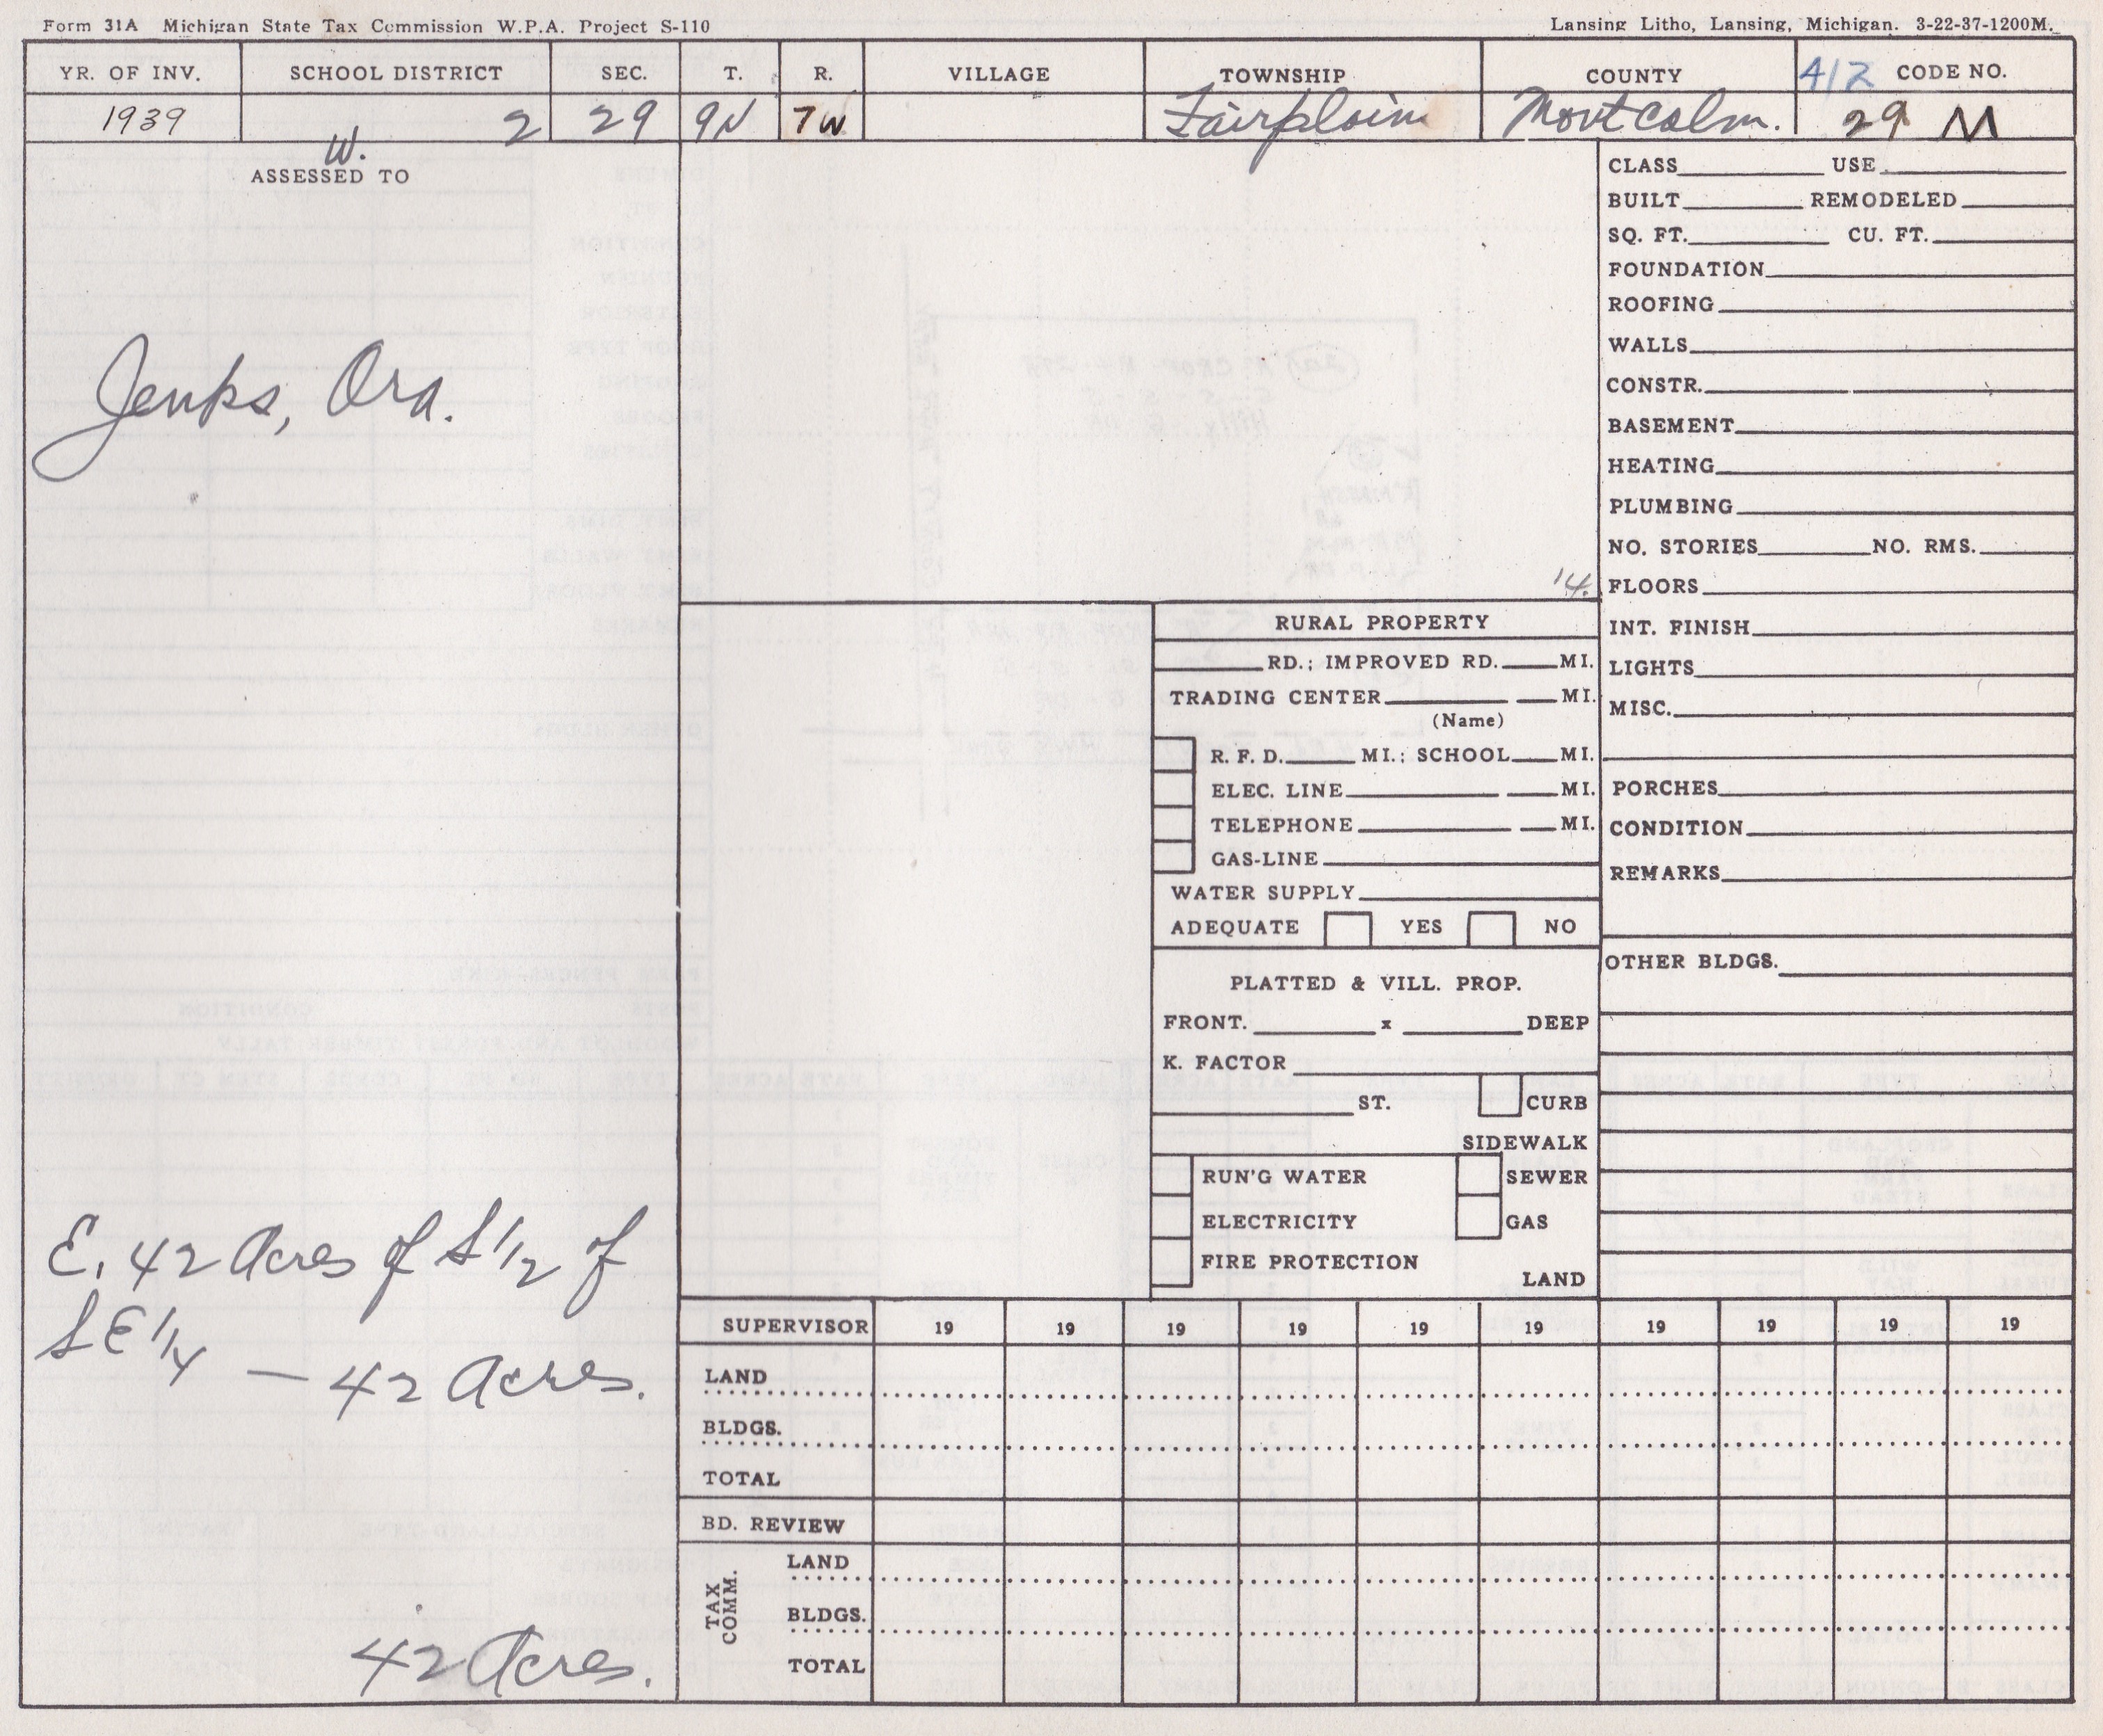 Form 31A Michigan State Tax Commission W.P.A. Project S-110
Lansing Litho, Lansing, Michigan. 3-22-37-1200M.
YR. OF INV. SCHOOL DISTRICT SEC. T. R. VILLAGE TOWNSHIP COUNTY 412 CODE NO.
1939 2 29 9N 7W Fairplain Montcalm. 29 M
W.
ASSESSED TO
Jenks, Ora.
E. 42 Acres of S 1/2 of
SE 1/4 — 42 Acres.
42 Acres.
14.
RURAL PROPERTY
RD.; IMPROVED RD. MI.
TRADING CENTER MI.
(Name)
R. F. D. MI.; SCHOOL MI.
ELEC. LINE MI.
TELEPHONE MI.
GAS-LINE
WATER SUPPLY
ADEQUATE YES NO
PLATTED & VILL. PROP.
FRONT. x DEEP
K. FACTOR
ST. CURB
SIDEWALK
RUN'G WATER SEWER
ELECTRICITY GAS
FIRE PROTECTION
LAND
CLASS USE
BUILT REMODELED
SQ. FT. CU. FT.
FOUNDATION
ROOFING
WALLS
CONSTR.
BASEMENT
HEATING
PLUMBING
NO. STORIES NO. RMS.
FLOORS
INT. FINISH
LIGHTS
MISC.
PORCHES
CONDITION
REMARKS
OTHER BLDGS.
SUPERVISOR 19 19 19 19 19 19 19 19 19 19
LAND
BLDGS.
TOTAL
BD. REVIEW
TAX COMM.
LAND
BLDGS.
TOTAL